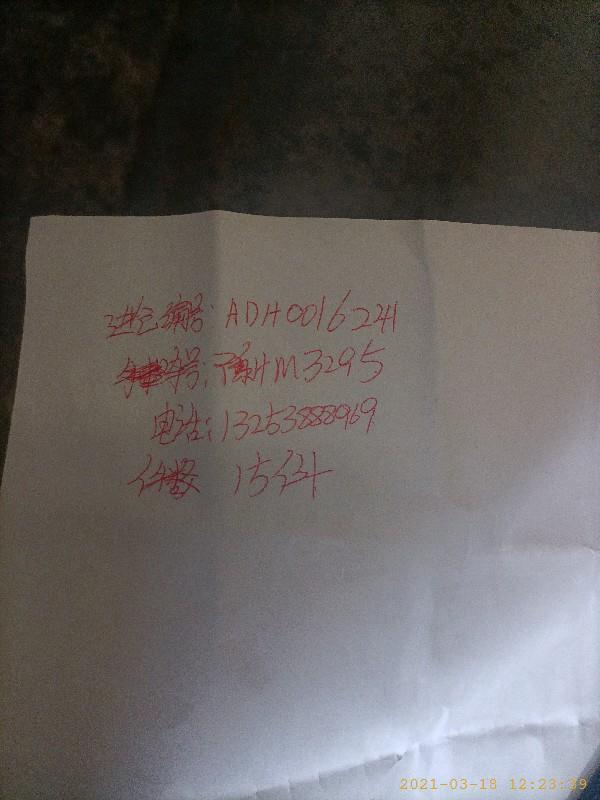 进仓编号: ADH0016241
车号: 豫HM3295
电话: 13253888969
件数 15件
2021-03-18 12:23:39